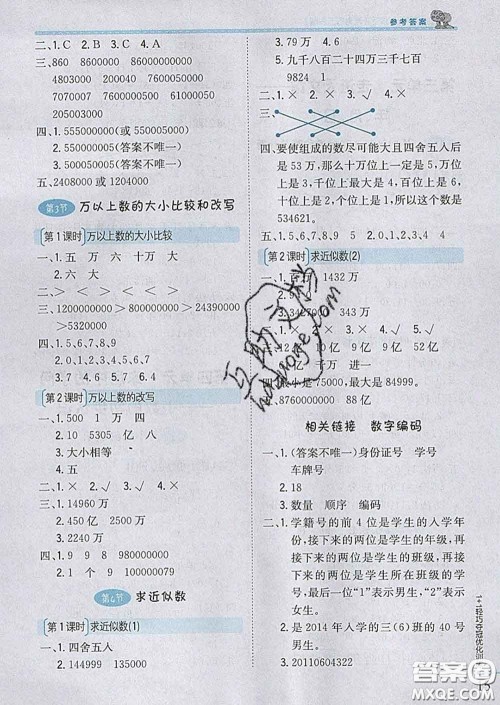 参考答案
二、1.C 2.B 3.C 4.A
三、860 8600000 8000000
8430000 5000000 4680000
7070007 60000000 67000000
205003000
四、1.555000000(或550005000)
2.550000005(答案不唯一)
3.500505055(答案不唯一)
五、2408000或1204000
第3节 万以上数的大小比较和改写
第1课时 万以上数的大小比较
一、1.五 万 六 十万 大
2.六 大
二、> < < < < >
三、1200000000>820000000>24390000
>2320000
四、1.5,6,7,8,9
2.0,1,2,3,4,5,6
3.7 4.6 5.7 6.1
第2课时 万以上数的改写
一、1.500 1 万 四
2.10 5305 亿 八
3.大小相等
二、1.× 2.√ 3.× 4.×
三、1.14960万
2.450亿 2500亿
3.2240万
四、1.9 9 8 980000000
2.1 个 9 980000000
第4节 求近似数
第1课时 求近似数(1)
一、1.四舍五入
2.144999 135000
3.79万 4.9
5.九千八百二十四万三千七百
9824 1
二、1.× 2.× 3.√ 4.×
三、
四、要使组成的数尽可能大且四舍五入后
是53万,那么十万位上一定是5,万位
上是3,千位上是4,百位上是6,十位
上是2,个位上是1,所以这个数是
534621。
五、1.5,6,7,8,9 2.0,1,2,3,4
第2课时 求近似数(2)
一、1.百万 1432万
2.亿
3.3427000 343万
二、1.√ 2.× 3.√ 4.×
三、12亿 10亿 9亿 1亿
亿 千万 进一
四、1.最小是75000,最大是84999。
2.8760000000 88亿
相关链接 数字编码
一、1.(答案不唯一)身份证号 学号
车牌号
2.18
3.数量 顺序 编码
二、1.学籍号的前4位是学生的入学年
份,接下来的两位是学生的年级,再
接下来的两位是学生的班级,再接
下来的两位是学生所在班级的学
号,最后一位“1”表示男生,“2”表
示女生。
2.是2014年入学的三(6)班的40号
男生。
3.20110604322
互助文档
huzhuoge.com
1+1轻巧夺冠优化训
答案圈
MXQE.COM